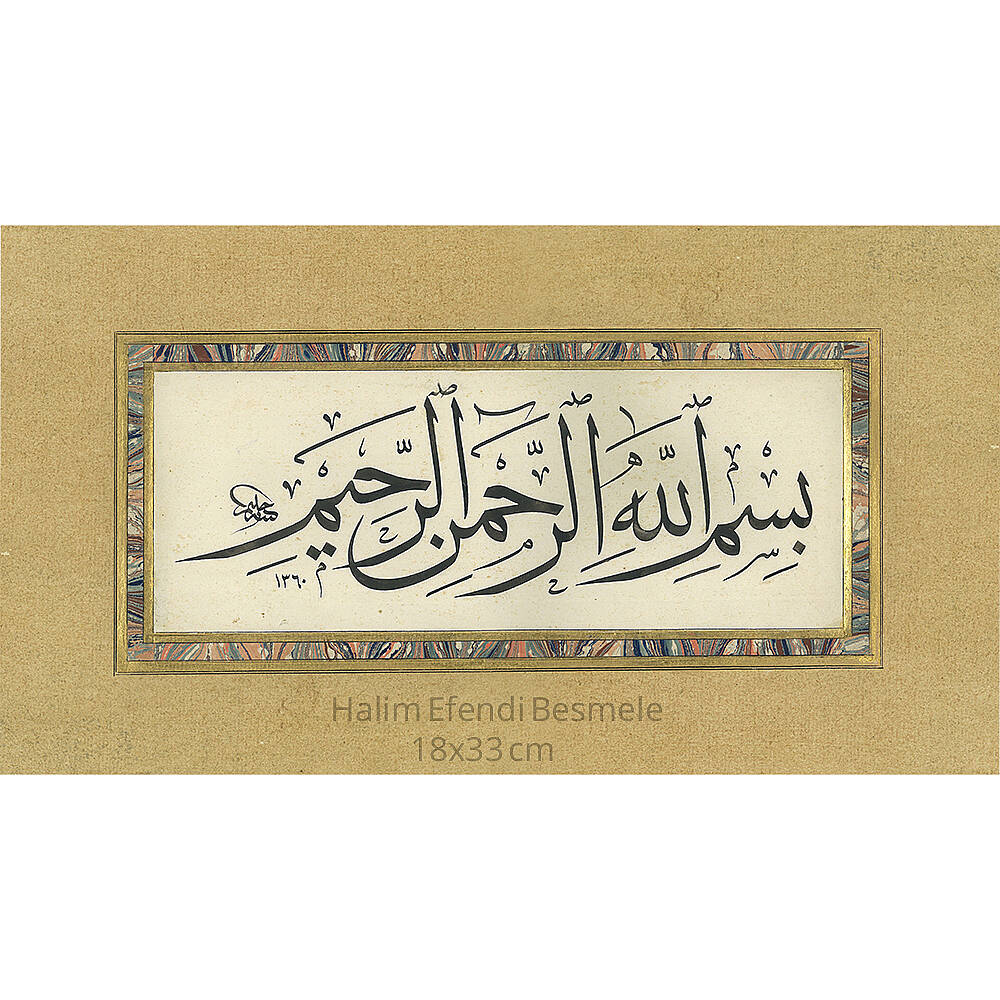 بِسْمِ اللّٰهِ الرَّحْمٰنِ الرَّحِيمِ
١٣٦٠
Halim Efendi Besmele
18x33 cm